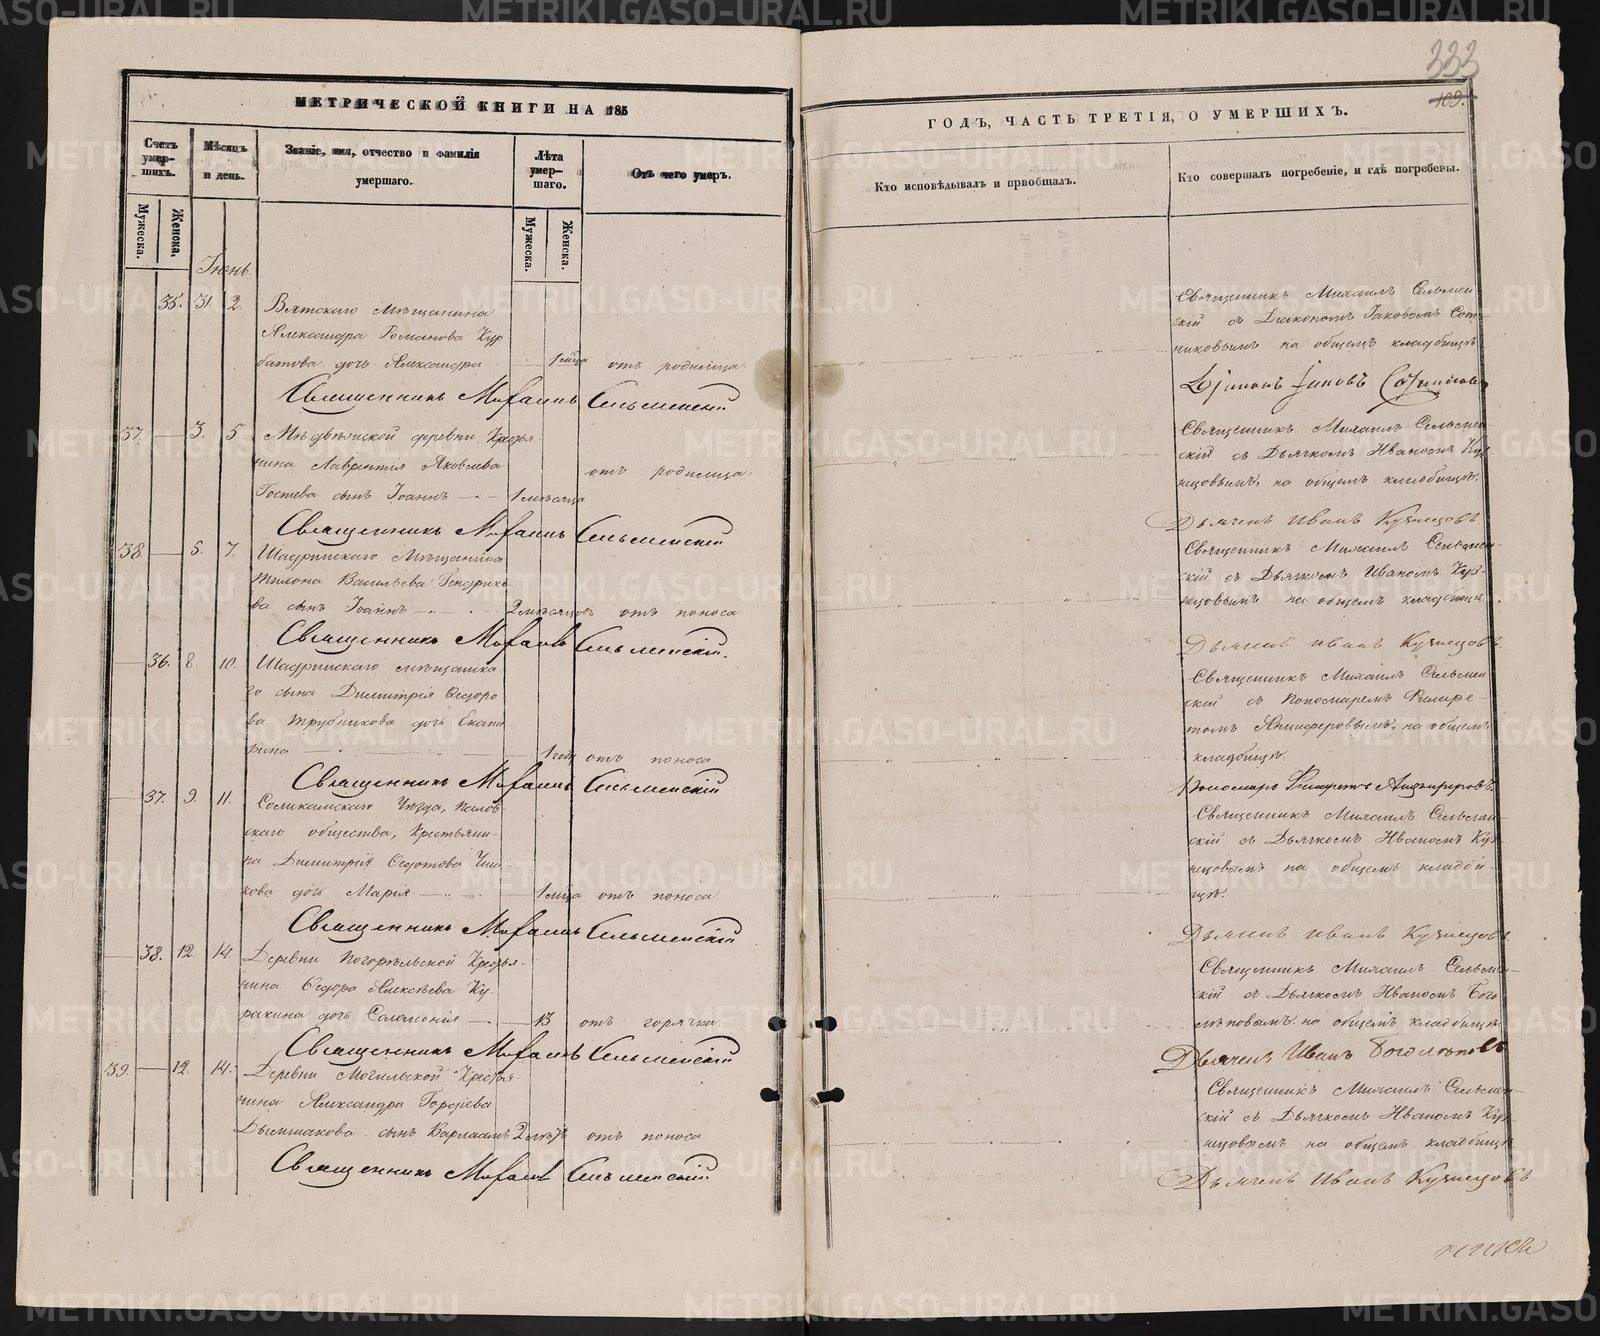 333
109.
МЕТРИЧЕСКОЙ КНИГИ НА 185
ГОДЪ, ЧАСТЬ ТРЕТІЯ, О УМЕРШИХЪ.
Счетъ умер-шихъ.
Мужеска.
Женска.
Мѣсяцъ и день.
Званіе, имя, отчество и фамилія умершаго.
Лѣта умер-шаго.
Мужеска.
Женска.
Отъ чего умеръ.
Кто исповѣдывалъ и пріобщалъ.
Кто совершалъ погребеніе, и гдѣ погребены.
Іюнь.
35. 31. 2. Вятскаго Мѣщанина
Александра Романова Кур
батова дочь Александра 1 мца отъ родимца.
Священникъ Михаилъ Сельменскій
Священникъ Михаилъ Сельмен
скій съ Діакономъ Іаковомъ Сот-
никовымъ на общемъ кладбищѣ
Діаконъ Іаковъ Сотниковъ
37. 3. 5. Медвѣжской деревни, Крестья
нина Лаврентія Яковлева
Гостева сынъ Іоаннъ 1 мѣсяца отъ родимца.
Священникъ Михаилъ Сельменскій
Священникъ Михаилъ Сельмен
скій съ Дьячкомъ Иваномъ Куз
нецовымъ, на общемъ кладбищѣ.
Дьячекъ Иванъ Кузнецовъ
38. 5. 7. Шадринскаго Мѣщанина
Тихона Васильева
ва сынъ Іоаннъ 2 мѣсяцовъ отъ поноса
Священникъ Михаилъ Сельменскій.
Священникъ Михаилъ Сельмен
скій съ Дьячкомъ Иваномъ Куз-
нецовымъ на общемъ кладбищѣ.
Дьячекъ Иванъ Кузнецовъ.
36. 8. 10. Шадринскаго мѣщанска
го сына Димитрія Ѳедоро
ва Трубникова дочь Екате-
рина 1 года отъ поноса
Священникъ Михаилъ Сельменскій
Священникъ Михаилъ Сельмен
скій съ Пономаремъ Филаре-
томъ Анциферовымъ, на общемъ
кладбищѣ.
Пономарь Филаретъ Анциферовъ.
37. 9. 11. Соликамскаго Уѣзда,
скаго общества, Крестьяни-
на Димитрія Ѳедотова
кова дочь Марія 1 мца отъ поноса.
Священникъ Михаилъ Сельменскій
Священникъ Михаилъ Сельмен-
скій съ Дьячкомъ Иваномъ Куз-
нецовымъ на общемъ кладби-
щѣ.
Дьячекъ Иванъ Кузнецовъ
38. 12. 14. Деревни Погорѣльской Крестья-
нина Ѳедора Алексѣева Ку-
ракина дочь Саломонія 13 отъ горячки
Священникъ Михаилъ Сельменскій
Священникъ Михаилъ Сельмен-
скій съ Дьячкомъ Иваномъ Бого
лѣповымъ на общемъ кладбищѣ
Дьячекъ Иванъ Боголѣповъ
39. 12. 14. Деревни Могильской Крестья-
нина Александра Гордѣева
Дышлакова сынъ Варлаамъ 2 отъ поноса
Священникъ Михаилъ Сельменскій
Священникъ Михаилъ Сельмен-
скій съ Дьячкомъ Иваномъ Куз-
нецовымъ на общемъ кладбищѣ
Дьячекъ Иванъ Кузнецовъ
METRIKI.GASO-URAL.RU